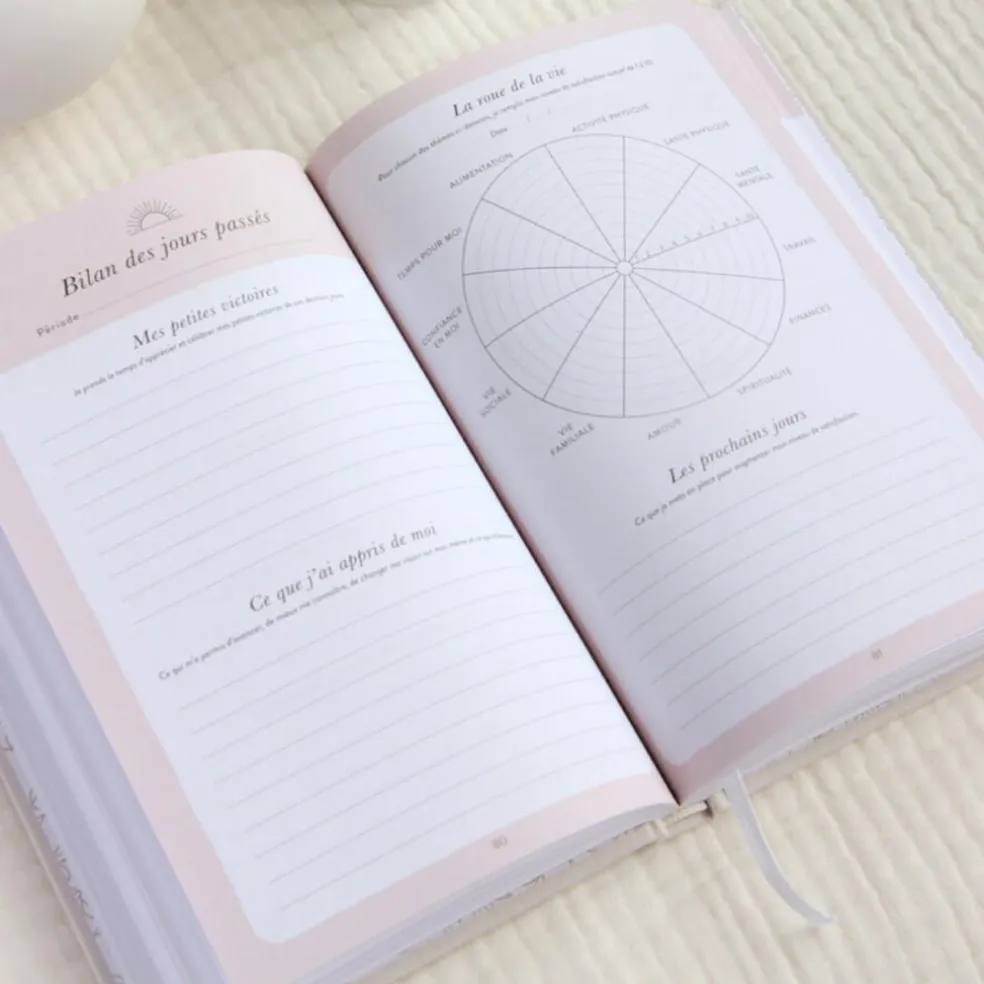 Bilan des jours passés
Période
Mes petites victoires
Je prends le temps d'apprécier et célébrer mes petites victoires de ces derniers jours.
Ce que j'ai appris de moi
Ce qui m'a permis d'avancer, de mieux me connaître, de changer ma vision sur moi même et ce qui
80
La roue de la vie
Pour chacun des thèmes ci-dessous, je remplis mon niveau de satisfaction actuel de 1 à 10.
Date / /
ACTIVITÉ PHYSIQUE
SANTÉ PHYSIQUE
SANTÉ
MENTALE
TRAVAIL
FINANCES
SPIRITUALITÉ
AMOUR
VIE
FAMILIALE
VIE
SOCIALE
CONFIANCE
EN MOI
TEMPS POUR MOI
ALIMENTATION
Les prochains jours
Ce que je mets en place pour augmenter mon niveau de satisfaction.
81